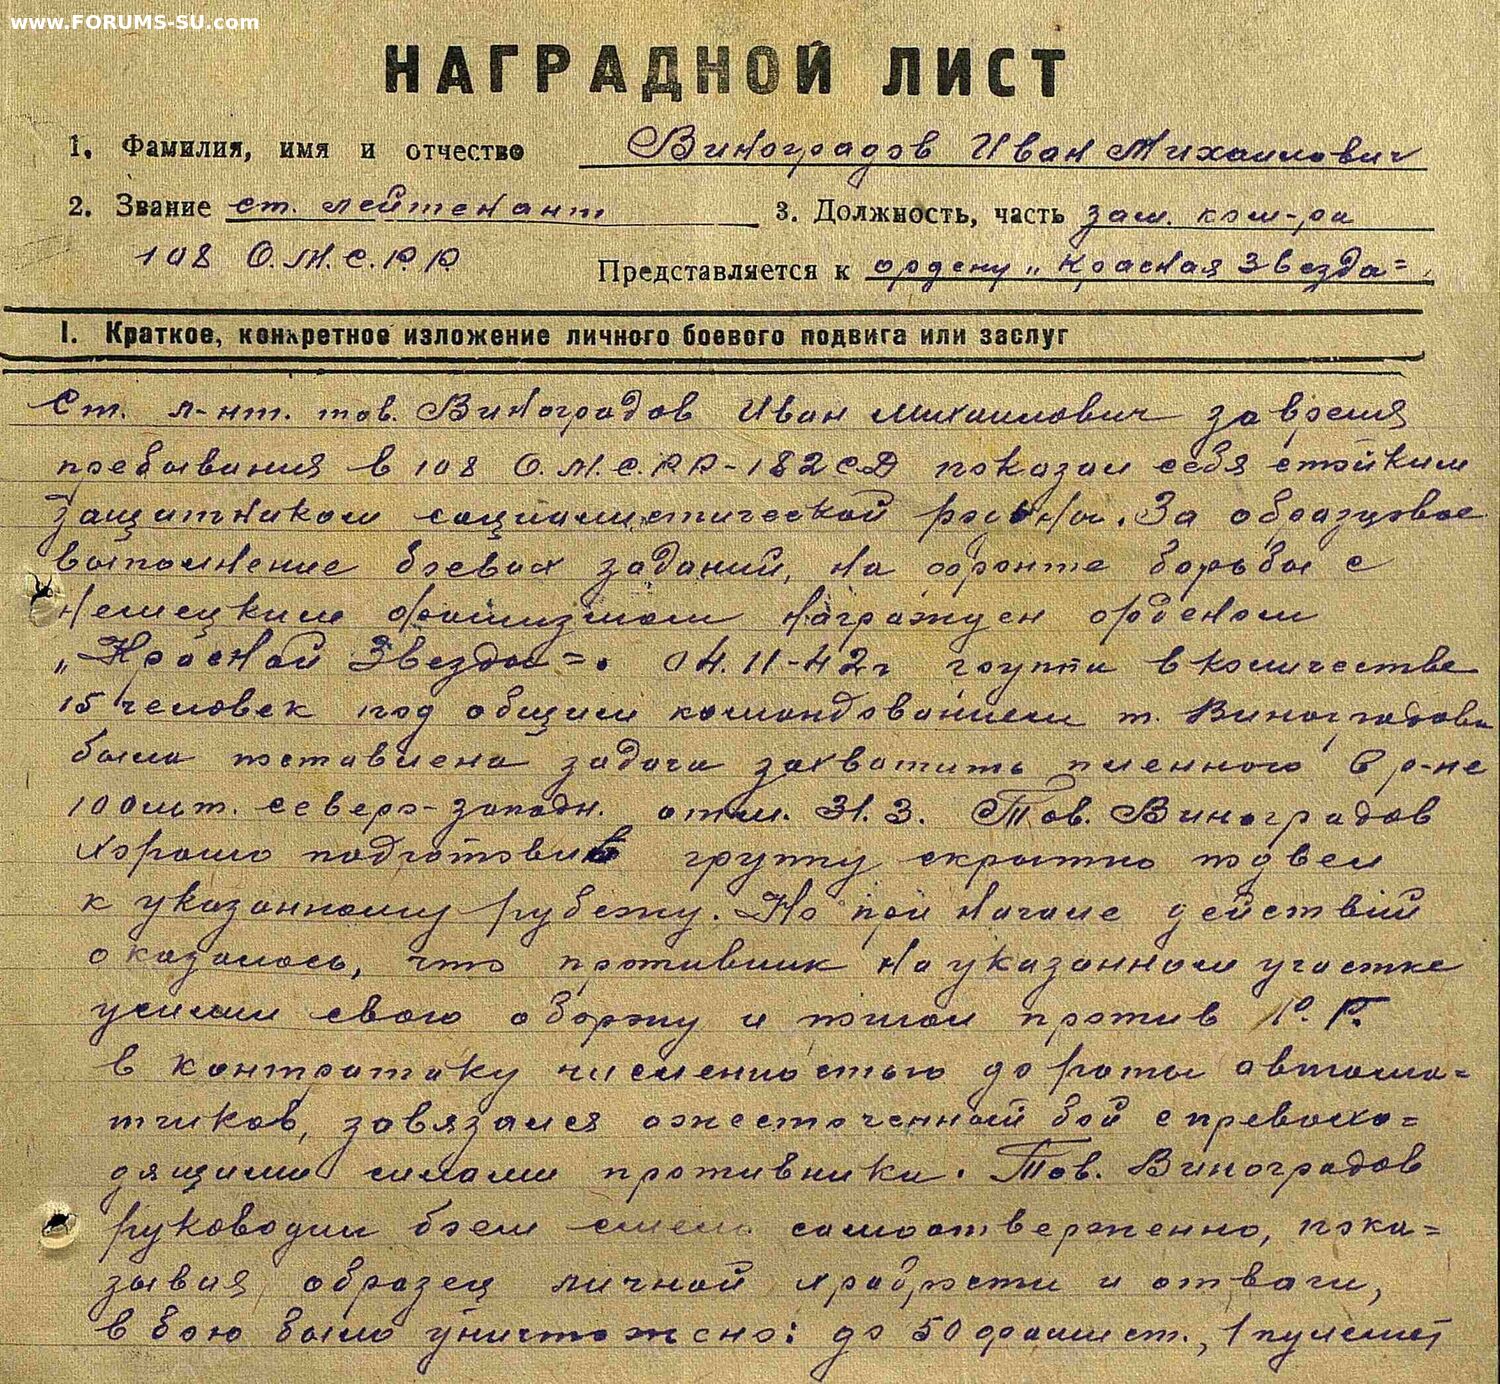 www.FORUMS-SU.com
НАГРАДНОЙ ЛИСТ
1. Фамилия, имя и отчество Виноградов Иван Михаилович
2. Звание ст. лейтенант 3. Должность, часть зам. ком-ра
108 О.М.С.Р.Р. Представляется к ордену „Красная Звезда“.
I. Краткое, конкретное изложение личного боевого подвига или заслуг
Ст. л-нт. тов. Виноградов Иван Михаилович за время
пребывания в 108 О.М.С.Р.Р-182 СД показал себя стойким
защитником социалистической родины. За образцовое
выполнение боевых заданий, на фронте борьбы с
немецким фашизмом награжден орденом
„Красной Звезды“. 04.11-42г группа в количестве
15 человек под общим командованием т. Виноградова
была поставлена задача захватить пленного в р-не
100 мт. северо-западн. отм. Тов. Виноградов
хорошо подготовив группу скрытно подвел
к указанному рубежу. Но при начале действий
оказалось, что противник на указанном участке
усилил свою оборону и пошел против Р.Г.
в контратаку численностью до роты автома=
тчиков, завязался ожесточенный бой с превосхо=
дящими силами противника. Тов. Виноградов
руководил боем смело самоотверженно, пока=
зывая образец личной храбрости и отваги,
в бою было уничтожено: до 50 фашист., 1 пулемет